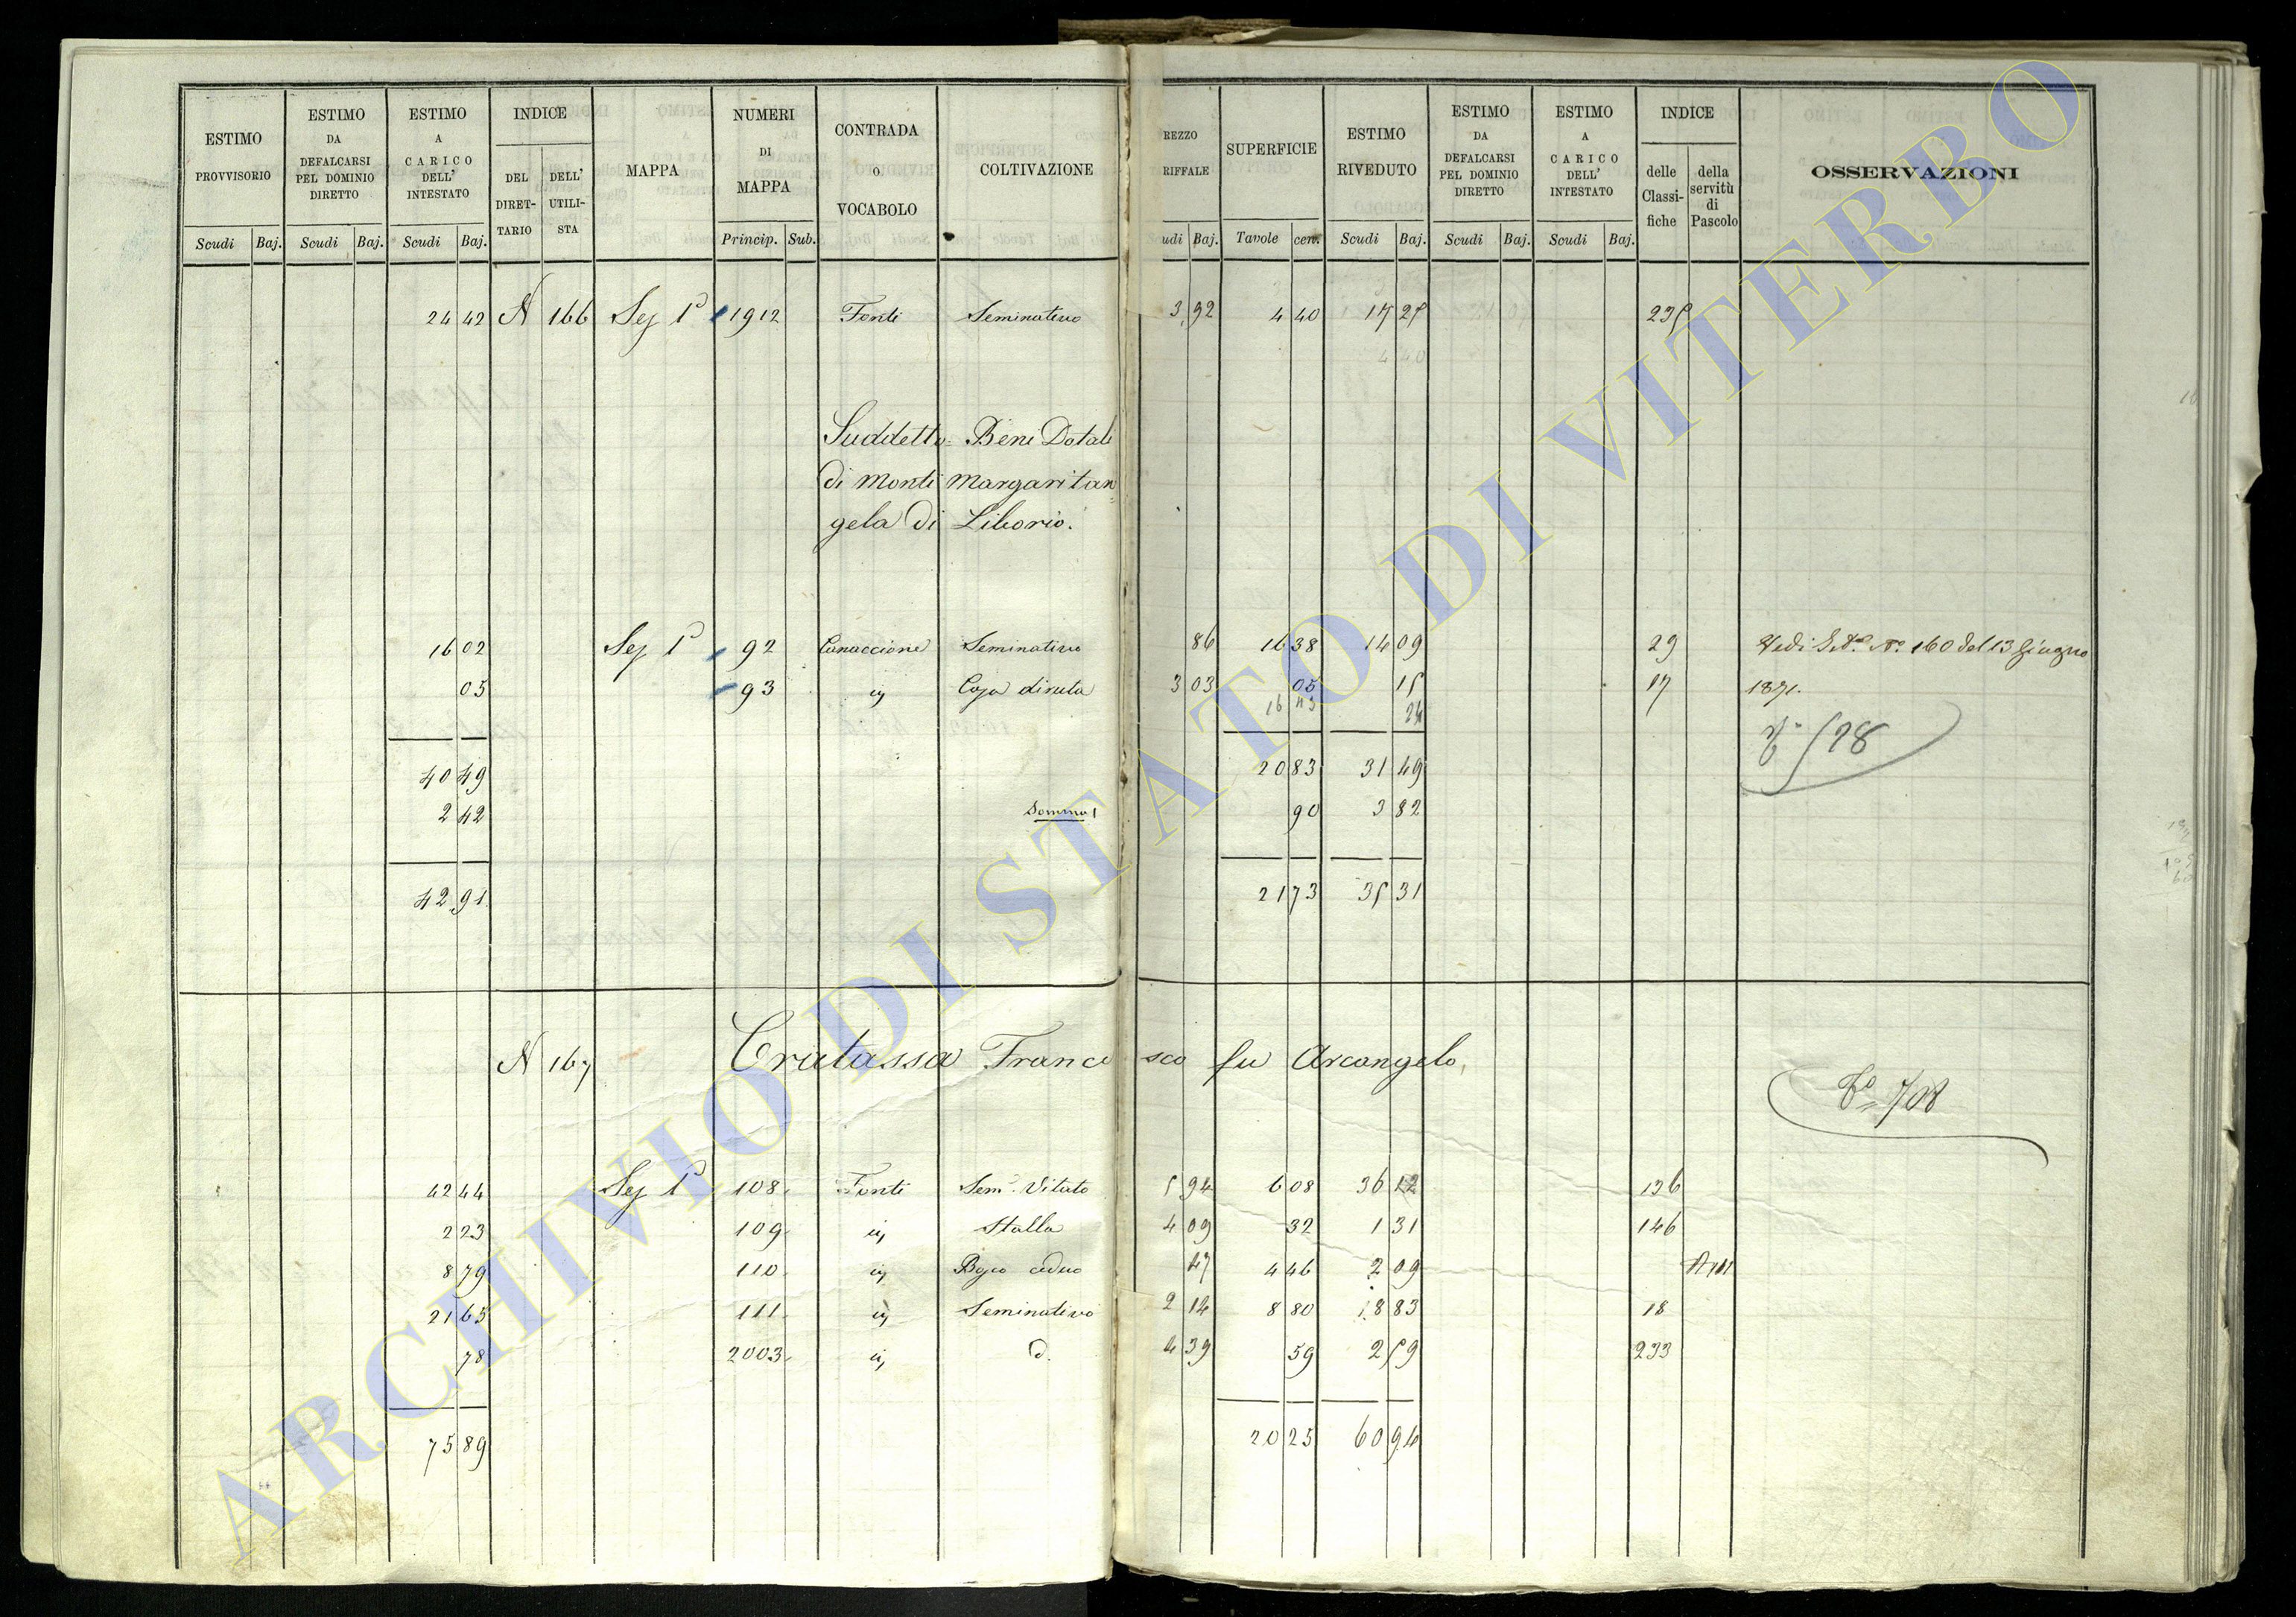 ESTIMO PROVVISORIO | ESTIMO DA DEFALCARSI PEL DOMINIO DIRETTO | ESTIMO A CARICO DELL' INTESTATO | INDICE | MAPPA | NUMERI DI MAPPA | CONTRADA O VOCABOLO | COLTIVAZIONE | REZZO RIFFALE | SUPERFICIE | ESTIMO RIVEDUTO | ESTIMO DA DEFALCARSI PEL DOMINIO DIRETTO | ESTIMO A CARICO DELL' INTESTATO | INDICE | OSSERVAZIONI
DEL DIRET-TARIO | DELL' UTILI-STA | delle Classi-fiche | della servitù di Pascolo
Scudi | Baj. | Scudi | Baj. | Scudi | Baj. | Princip. | Sub. | udi | Baj. | Tavole | cen. | Scudi | Baj. | Scudi | Baj. | Scudi | Baj.
24 42 | N | 166 | Sez 1ª | 1912 | Fonti | Seminativo | 3 92 | 4 40 | 17 25 | 235
4 40
Suddetto= Beni Dotali
di Monti Margaritan=
gela di Liborio.
16 02 | Sez 1ª | 92 | Canaccione | Seminativo | 86 | 16 38 | 14 09 | 29 | Vedi N° 160 del 13 Giugno
05 | 93 | Casa diruta | 3 03 | 05 | 15 | 17 | 1871.
16 43 | 24
528
40 49 | 20 83 | 31 49
2 42 | Somma | 90 | 3 82
42 91 | 21 73 | 35 31
N | 167 | Cratassa Francesco fu Arcangelo
708
42 44 | Sez 1ª | 108 | Fonti | Sem° Vitato | 5 94 | 6 08 | 36 12 | 136
2 23 | 109 | Stalla | 4 09 | 32 | 1 31 | 146
8 79 | 110 | Bosco ceduo | 47 | 4 46 | 2 09
21 65 | 111 | Seminativo | 2 14 | 8 80 | 18 83 | 18
78 | 2003 | d. | 4 39 | 59 | 2 59 | 233
75 89 | 20 25 | 60 94
ARCHIVIO DI STATO DI VITERBO